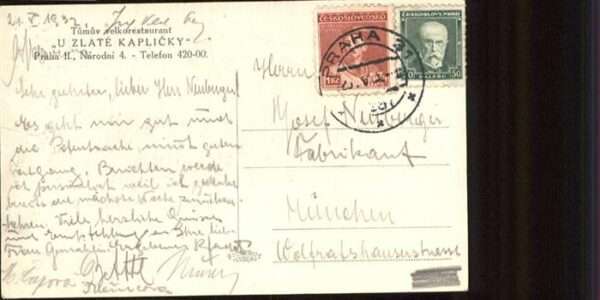 21. V 1932
Tůmův velkorestaurant
"U ZLATÉ KAPLIČKY"
Praha II., Národní 4. - Telefon 420-00.
Sehr geehrter, lieber Herr Neuberger!
Es geht mir gut und
die Patentsache nimmt guten
Fortgang, Berichten werde
ich persönlich weil ich gedenke
bereits die nächste Woche zurückzu-
kehren. Viele herzliche Grüsse
und Empfehlung an Ihre liebe
Frau Gemahlin
ČESKOSLOVENSKO
PRAHA
Herrn
Josef Neuberger
Fabrikant
München
Wolfratshauserstrasse